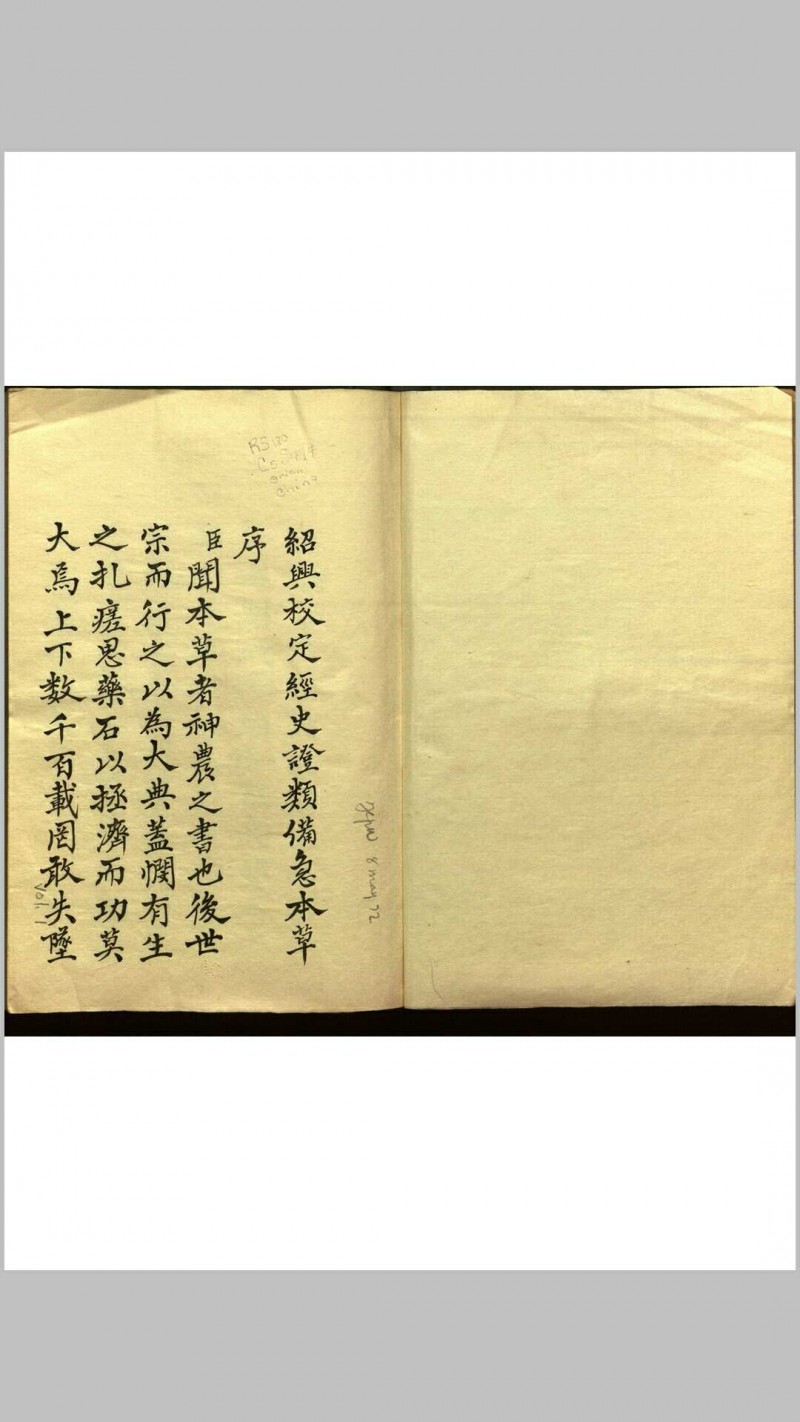 紹興校定經史證類備急本草
序
臣聞本草者神農之書也後世
宗而行之以為大典蓋憫有生
之扎瘥思藥石以拯濟而功莫
大焉上下数千百載罔敢失墜
RS180
China
8 May 72
Vol. 1